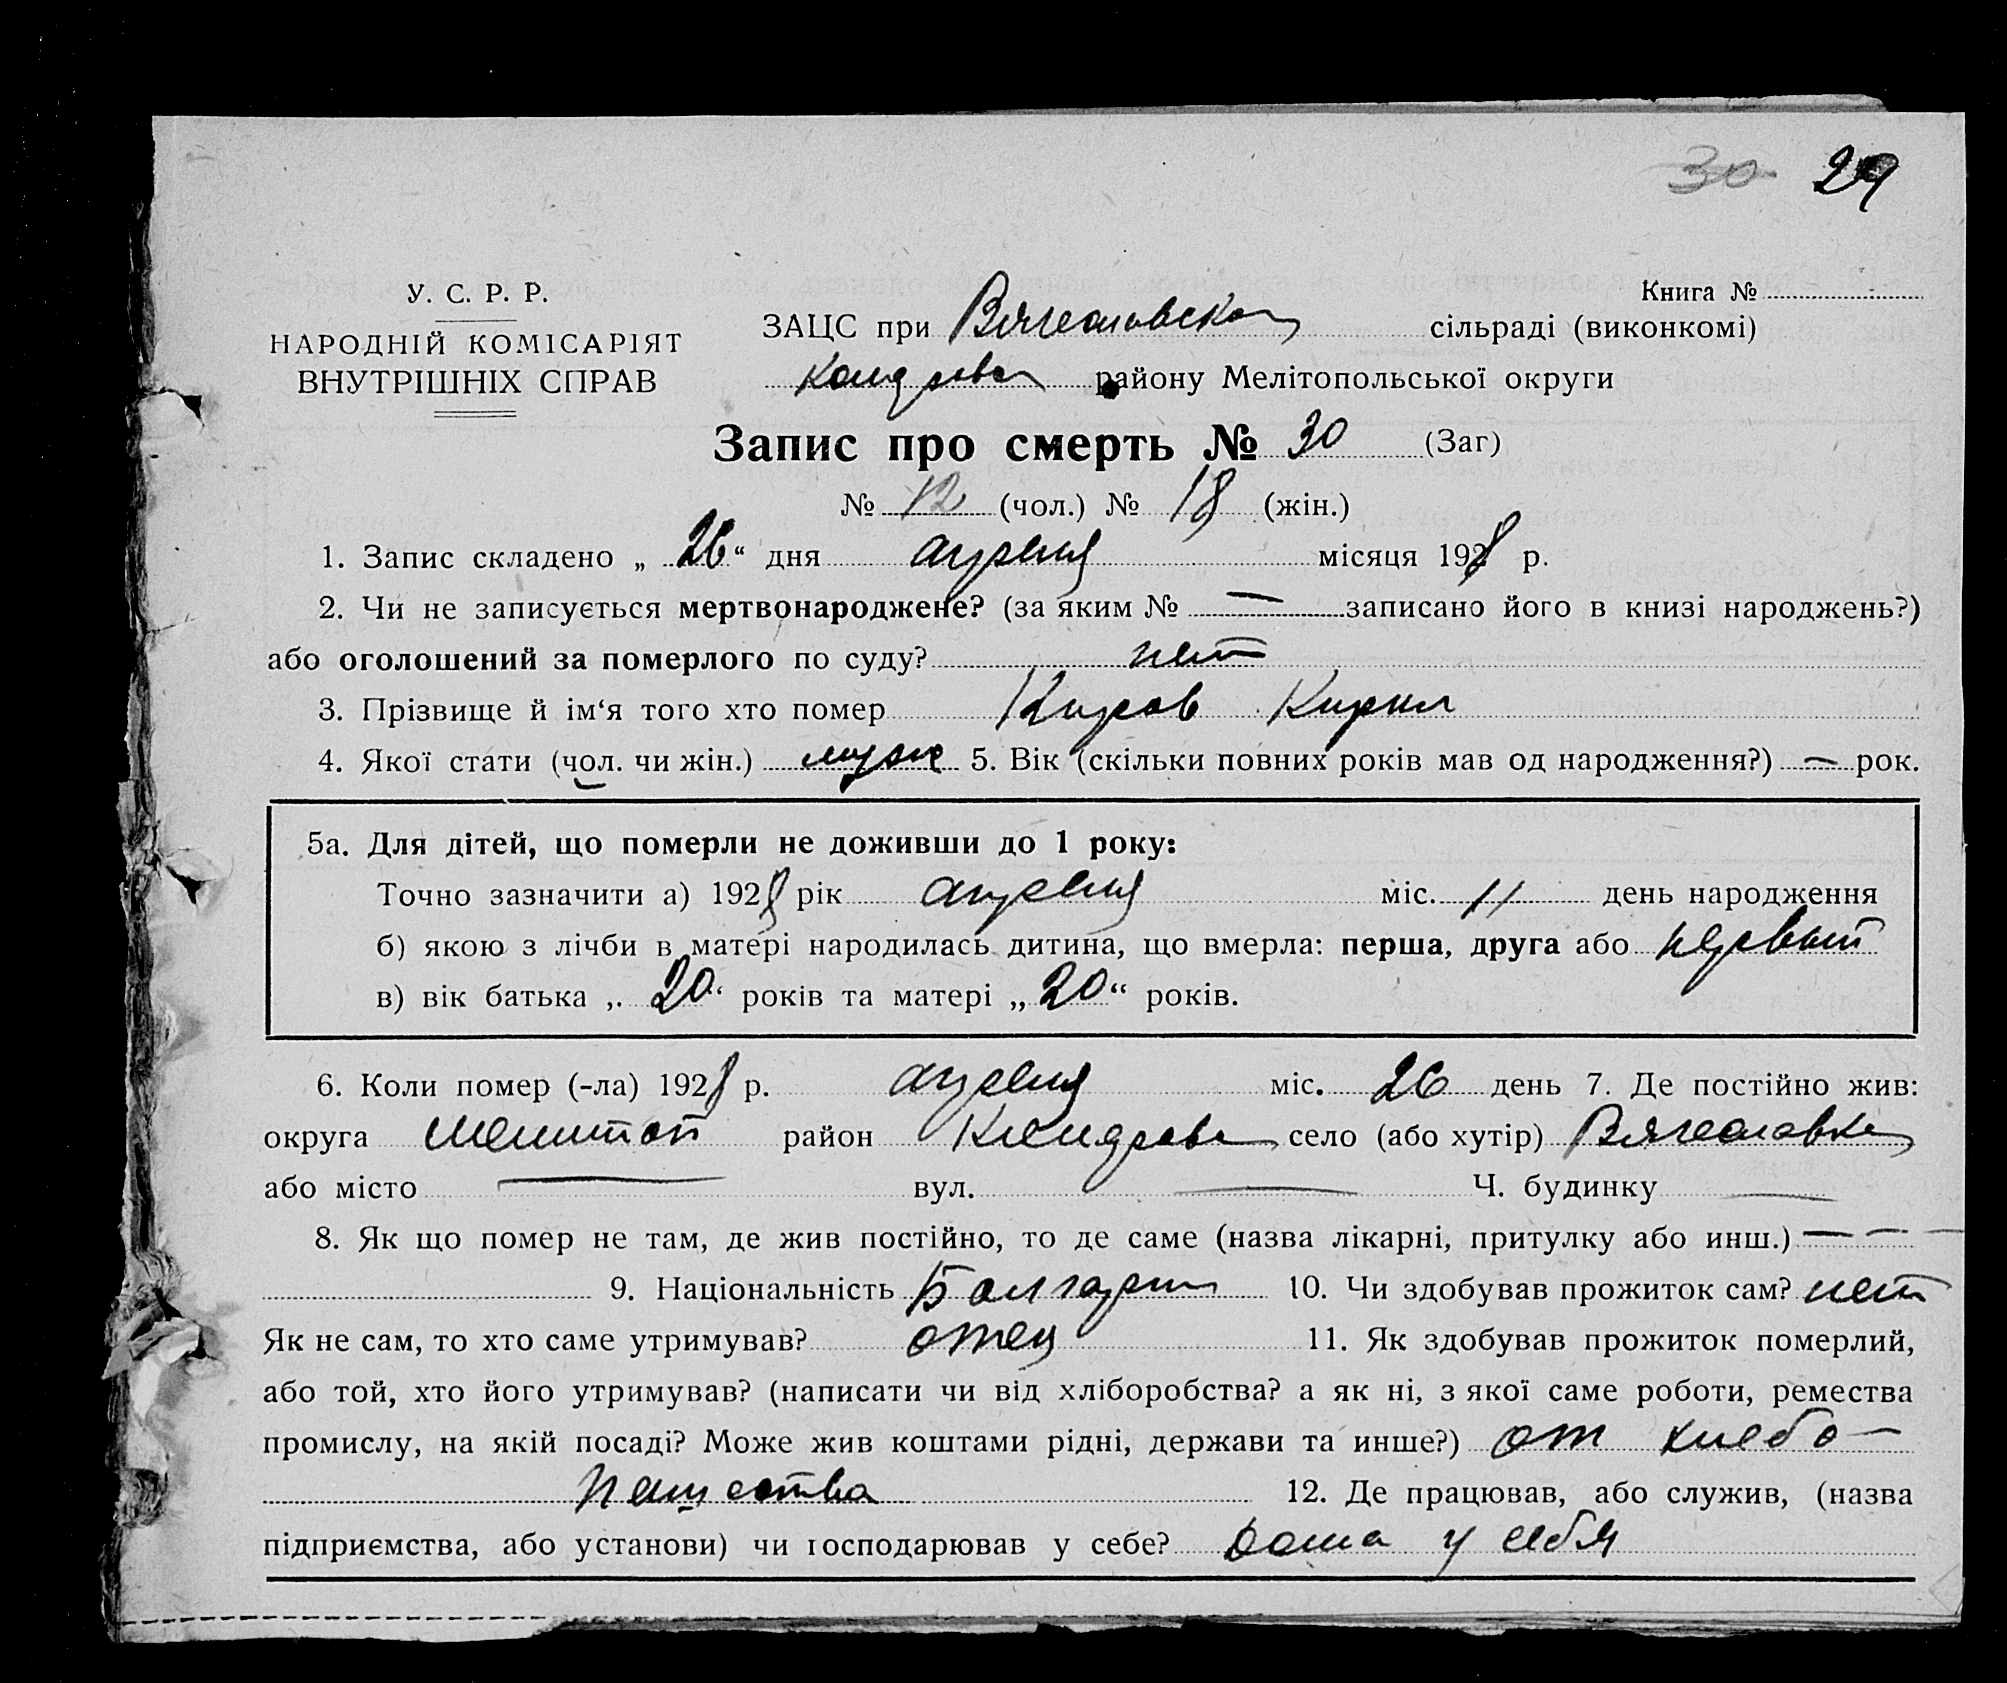 30 29
У. С. Р. Р.
НАРОДНІЙ КОМІСАРІЯТ
ВНУТРІШНІХ СПРАВ
Книга №
ЗАЦС при Вячеславской сільраді (виконкомі)
району Мелітопольської округи
Запис про смерть № 30 (Заг)
№ 12 (чол.) № 18 (жін.)
1. Запис складено „ 26 “ дня апреля місяця 1928 р.
2. Чи не записується мертвонароджене? (за яким № — записано його в книзі народжень?)
або оголошений за померлого по суду? нет
3. Прізвище й ім‘я того хто помер Киров Кирил
4. Якої стати (чол. чи жін.) муж 5. Вік (скільки повних років мав од народження?) — рок.
5а. Для дітей, що померли не доживши до 1 року:
Точно зазначити а) 1928 рік апреля міс. 11 день народження
б) якою з лічби в матері народилась дитина, що вмерла: перша, друга або первый
в) вік батька „ 20 “ років та матері „ 20 “ років.
6. Коли помер (-ла) 1928 р. апреля міс. 26 день 7. Де постійно жив:
округа Мелитоп район село (або хутір) Вячеславка
або місто — вул. — Ч. будинку —
8. Як що помер не там, де жив постійно, то де саме (назва лікарні, притулку або инш.) — — —
9. Національність Болгарин 10. Чи здобував прожиток сам? нет
Як не сам, то хто саме утримував? отец 11. Як здобував прожиток померлий,
або той, хто його утримував? (написати чи від хліборобства? а як ні, з якої саме роботи, ремества
промислу, на якій посаді? Може жив коштами рідні, держави та инше?) от хлебо-
пашества 12. Де працював, або служив, (назва
підприємства, або установи) чи господарював у себе? дома у себя